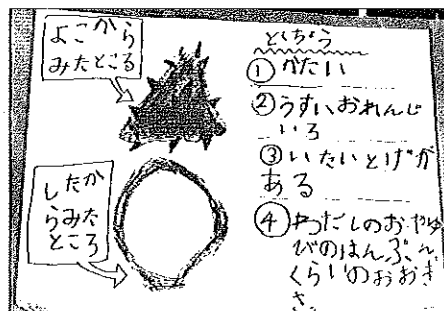 よこから
みたところ
したか
らみた
ところ
とくちょう
① かたい
② うすいおれんじ
いろ
③ いたいとげが
ある
④ わたしのおやゆ
びのはんぶん
くらいのおおき
さ